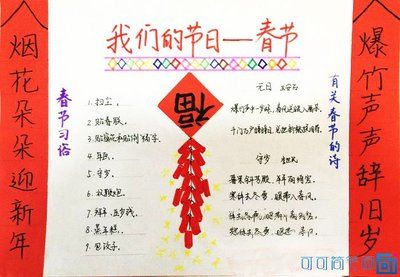 我们的节日——春节
爆竹声声辞旧岁
烟花朵朵迎新年
春节习俗
1.扫尘,
2.贴春联,
3.贴窗花和贴倒"福"字.
4.年画,
5.守岁.
6.放鞭炮,
7.拜年.压岁钱.
8.蒸年糕,
9.包饺子.
福
有关春节的诗
元日 王安石
爆竹声中一岁除,春风送暖入屠苏.
千门万户曈曈日,总把新桃换旧符.
守岁
可可简笔画